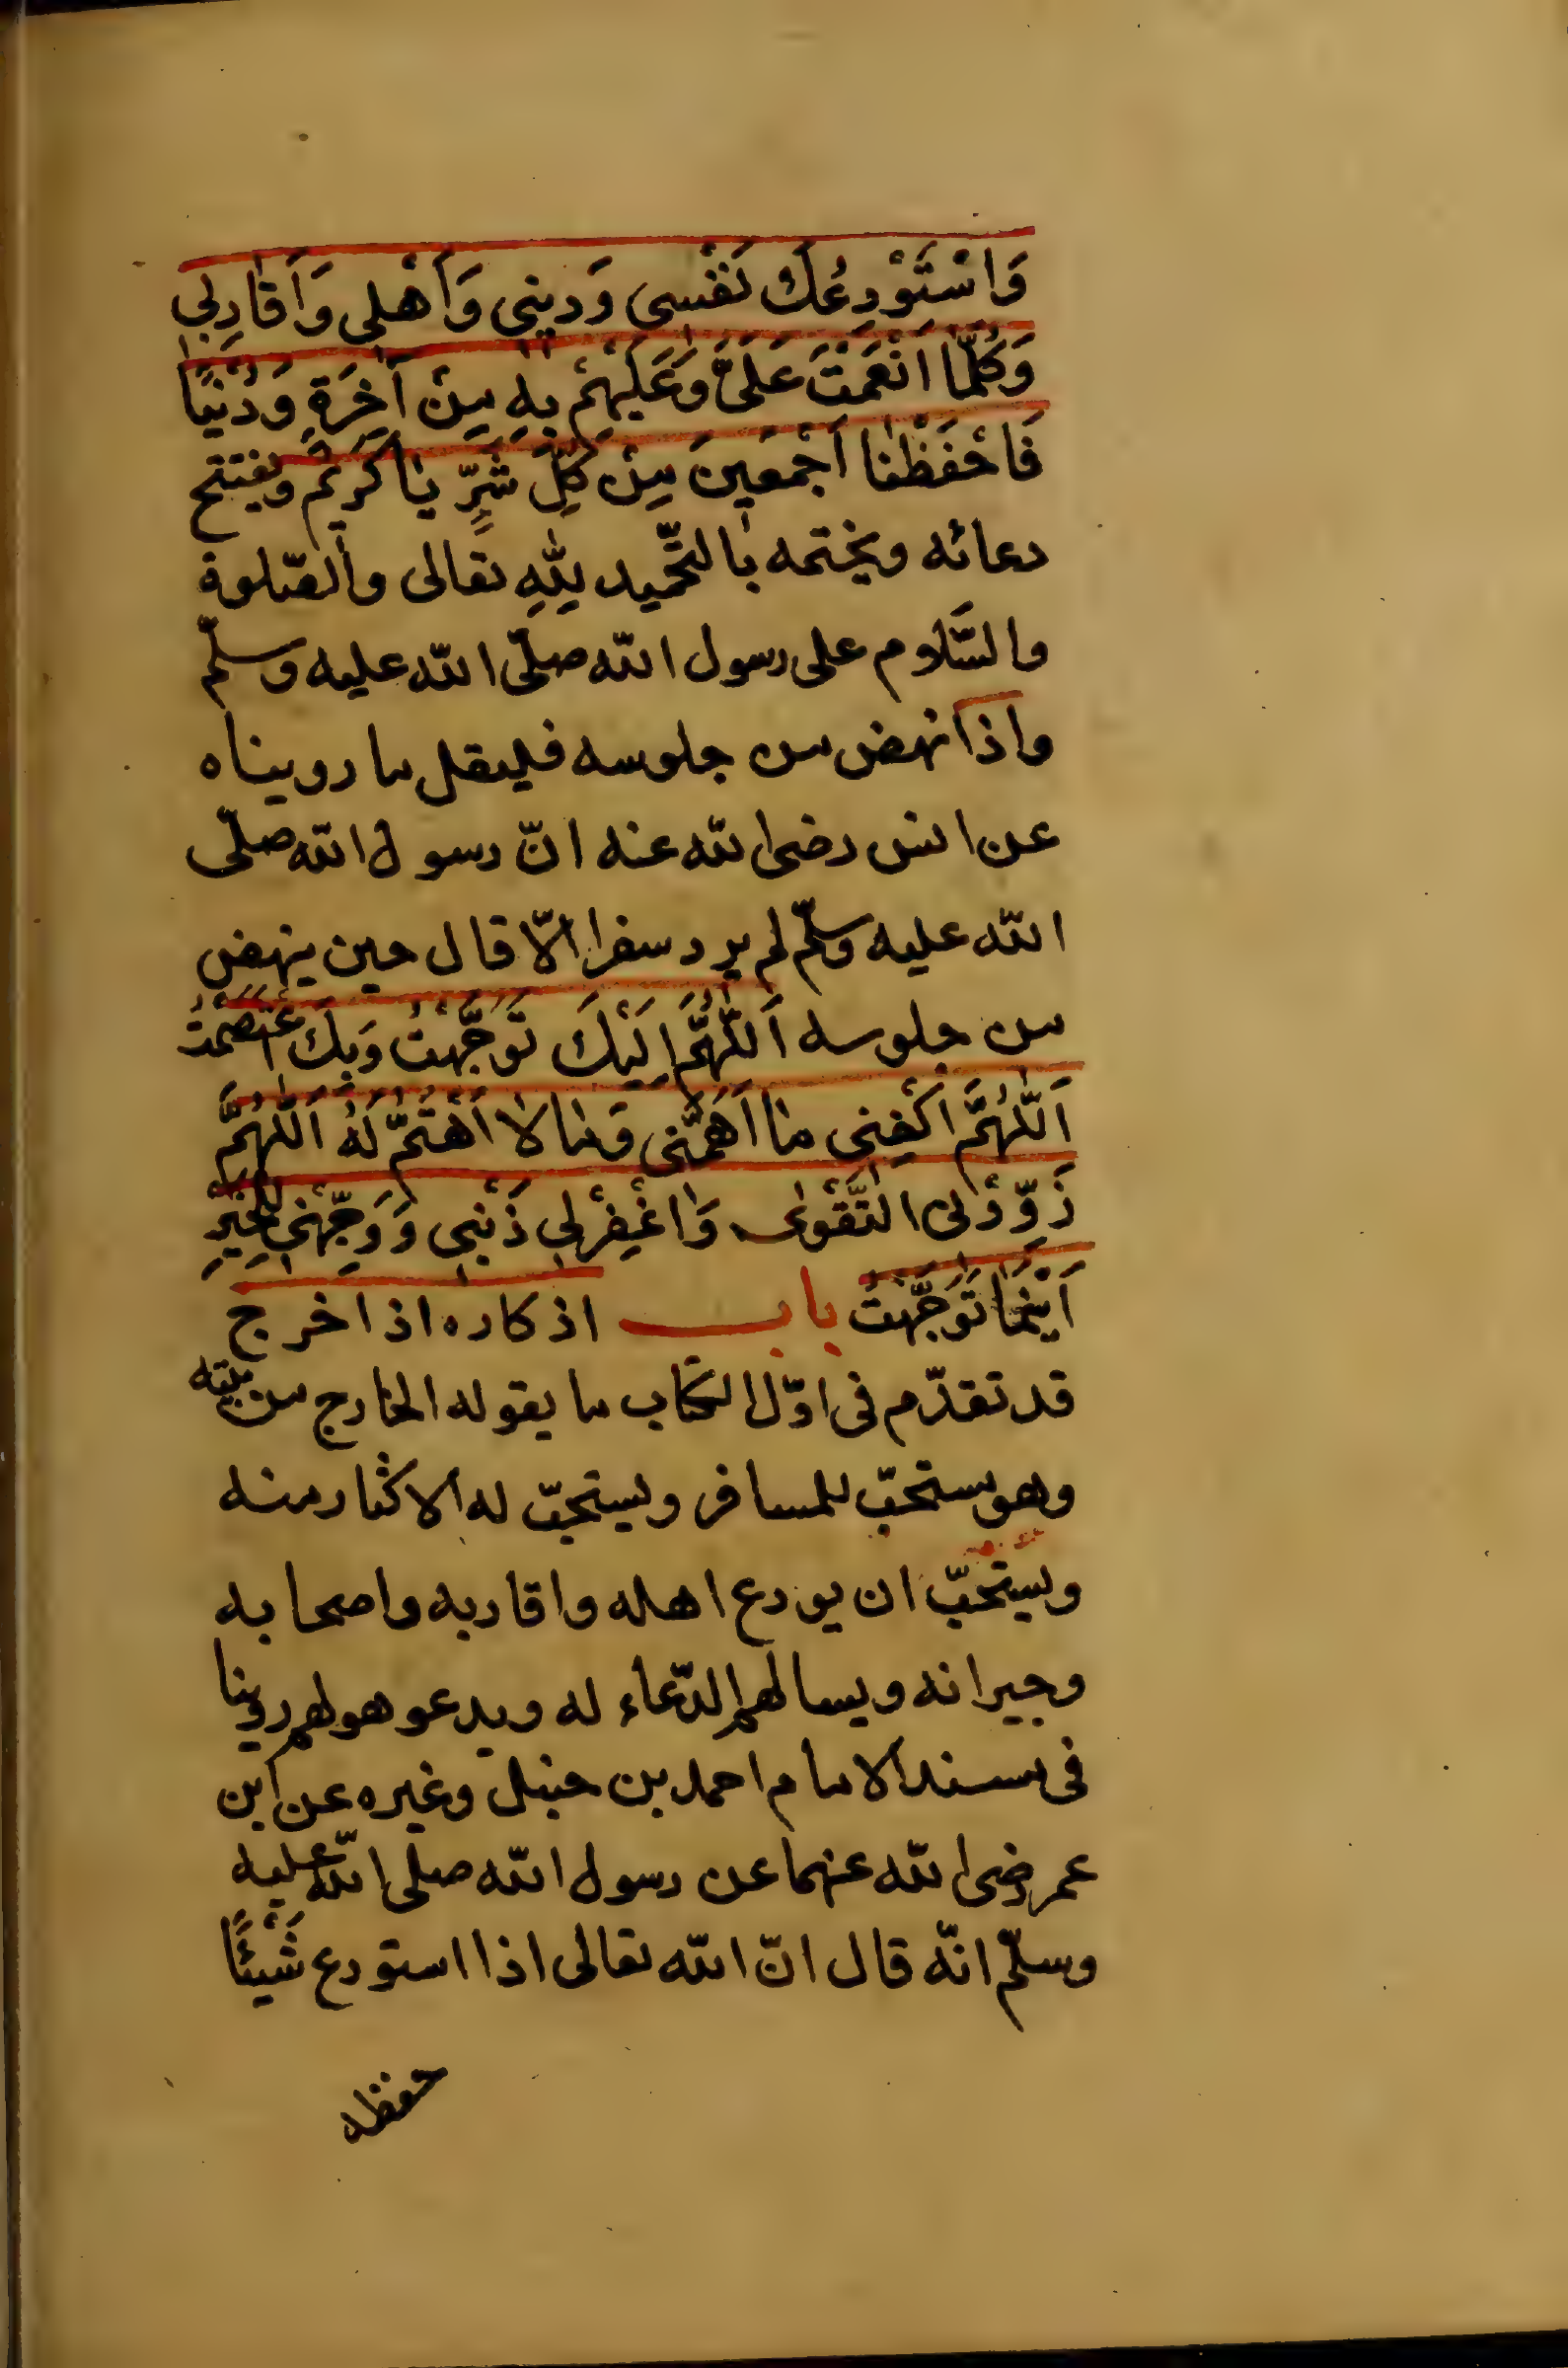 وَاَسْتَوْدِعُكَ نَفْسِي وَدِينِي وَاَهْلِي وَاَقَارِبِي
وَكُلَّمَا اَنْعَمْتَ عَلَيَّ وَعَلَيْهِمْ بِهِ مِنْ آخِرَةٍ وَدُنْيًا
فَاحْفَظْنَا اَجْمَعِينَ مِنْ كُلِّ شَرٍّ يَا كَرِيْمُ ويفتتح
دعائه ويختمه بالتّحميد لِلّٰهِ تعالى والصّلوة
والسَّلام على رسول اللّه صلّى اللّه عليه وسلّم
واذا نهض من جلوسه فليقل ما رويناه
عن انس رضى اللّه عنه انّ رسول اللّه صلّى
اللّه عليه وسلّم لم يرد سفرا الّا قال حين ينهض
من جلوسه اَللّٰهُمَّ اِلَيْكَ تَوَجَّهْتُ وَبِكَ اعْتَصَمْتُ
اَللّٰهُمَّ اكْفِنِي مَا اَهَمَّنِي وَمَا لَا اَهْتَمُّ لَهُ اَللّٰهُمَّ
زَوِّدْنِى التَّقْوٰى وَاغْفِرْ لِي ذَنْبِي وَوَجِّهْنِي لِلْخَيْرِ
اَيْنَمَا تَوَجَّهْتُ باب اذكاره اذا خرج
قد تقدّم فى اوّل الكتاب ما يقوله الخارج من بيته
وهو مستحبّ للمسافر ويستحبّ له الاكثار منه
ويستحبّ ان يودع اهله واقاربه واصحابه
وجيرانه ويسالهم الدّعاء له ويدعو هو لهم روينا
فى مسند الامام احمد بن حنبل وغيره عن ابن
عمر رضى اللّه عنهما عن رسول اللّه صلى اللّه عليه
وسلّم انّه قال انّ اللّه تعالى اذا استودع شَيْئًا
حفظه